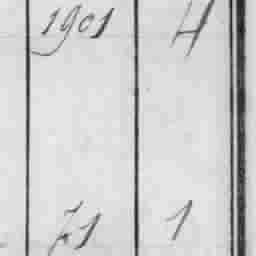 1901 4
71 1